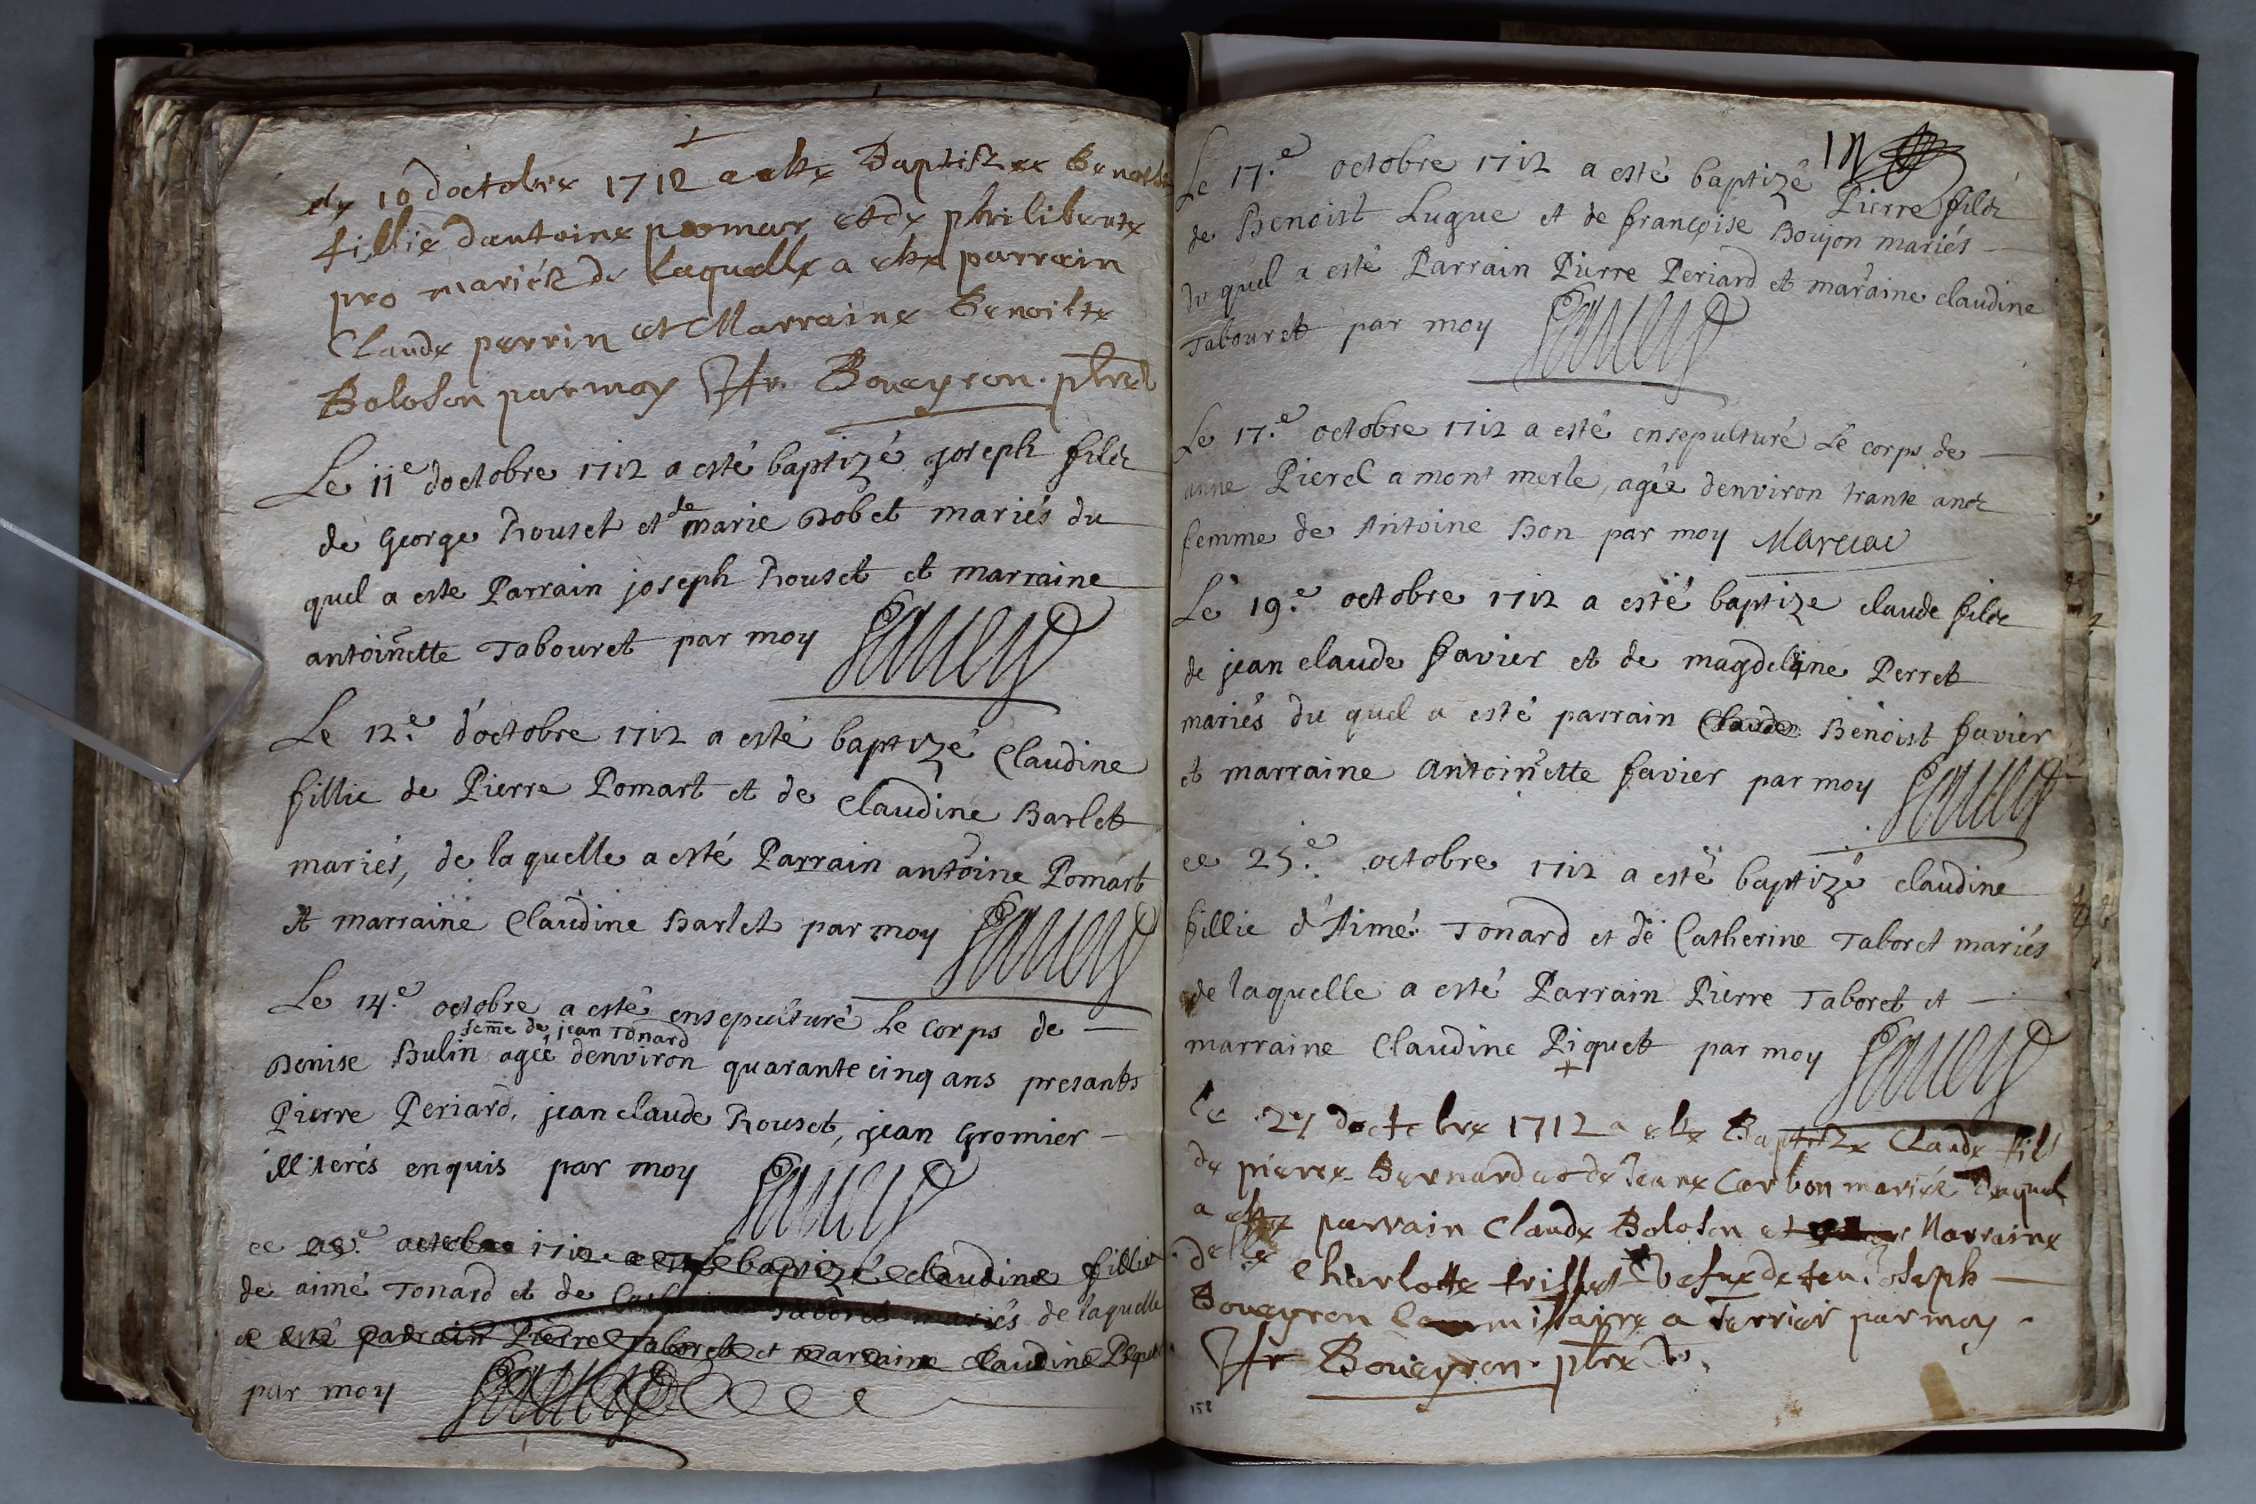 le 10 doctobre 1712 a este Baptizee Benoiste
fillie dantoine pomar et de philiberte
pro mariés de laquelle a este parrain
Claude perrin et Marraine Benoiste
Boloson par moy Boueyron ptre
Le 11e doctobre 1712 a esté baptizé joseph filz
de George Rouset et de marie Bobet mariés du
quel a este Parrain joseph Rouset et marraine
antoinette Tabouret par moy
Le 12.e d'octobre 1712 a esté baptizé Claudine
fillie de Pierre Pomart et de Claudine Barlet
mariés, de laquelle a esté Parrain antoine Pomart
et marraine Claudine Barlet par moy
Le 14.e octobre a esté ensepulturé Le corps de
feme de jean Tonard
Denise Bulin agée denviron quarante cinq ans presants
Pierre Periard, jean claude Rouset, jean Gromier
illiterés enquis par moy
ce octobre 1712 a esté baptizé claudine fillie
de aimé Tonard et de Catherine Taboret mariés de laquelle
a esté parrain Pierre Taboret et marraine Claudine Piquet
par moy
Le 17.e octobre 1712 a esté baptizé Pierre filz
de Benoist Lugue et de françoise Boujon mariés
du quel a esté Parrain Pierre Periard et maraine claudine
Tabouret par moy
Le 17.e octobre 1712 a esté ensepulturé Le corps de
anne Pierel a mont merle, agée denviron trante anz
femme de Antoine Bon par moy Marciac
Le 19.e octobre 1712 a esté baptize claude filz
de jean claude favier et de magdeleine Perret
mariés du quel a esté parrain Claude Benoist favier
et marraine Antoinette favier par moy
ce 25.e octobre 1712 a esté baptizé claudine
fillie d'Aimé Tonard et de Catherine Taboret mariés
de laquelle a esté Parrain Pierre Taboret et
marraine Claudine Piquet par moy
le 27 doctobre 1712 a este Baptize Claude fils
de pierre Bernard et de Jeane Corbon mariés Duquel
a este parrain Claude Boloson et Marraine
delle Charlotte vefue de feu Joseph
Boueyron Commissaire a Terrier par moy
Boueyron ptre
158